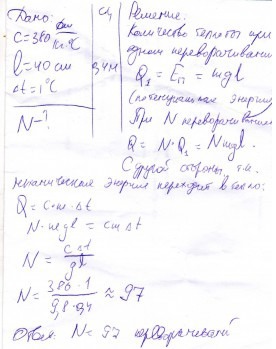 Дано: СИ Решение:
C=380 Дж/кг·°C Количество теплоты при
одном переворачивании
l=40 см 0,4 м Q₁ = Eп = mgl
Δt=1°C (потенциальная энергия)
N-? При N переворачиваниях
Q = N·Q₁ = Nmgl.
С другой стороны, т.к.
механическая энергия переходит в тепло:
Q = c·m·Δt
N·mgl = cmΔt
N = cΔt/gl
N = 380·1/9,8·0,4 ≈ 97
Ответ: N = 97 переворачиваний